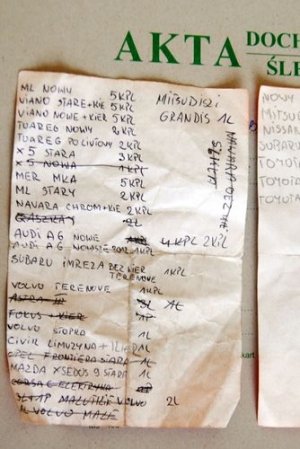 AKTA DOCH
ŚLE
ML NOWY 5KPL
VIANO STARE+KIE 5KPL
VIANO NOWE+KIER 5KPL
TUAREG NOWY 2KPL
TUAREG PO LIVIONY 2KPL
X5 STARA 3KPL
X5 NOWA 1KPL
MER MKA 5KPL
ML STARY 2KPL
NAVARA CHROM+KIE 2KPL
2L
AUDI A6 NOWE 4KPL 2KPL
AUDI A6 NOWSZE 2012 1KPL
SUBARU IMREZA BEZ KIER 1KPL
TERENOWE
VOLVO TERENOWE 1KPL
ASTRA III 3L 1L
FOKUS + KIER 1P
VOLVO STOPRO 1L
CIVIK LIMUZYNA + 1L
OPEL FRONTIERA STARA 1L
MAZDA XSEDOS 9 STARY 1L
CORSA C ELEKTRYKA
MALUTKIE VOLVO 2L
VOLVO MAŁE
MITSUDISZI
GRANDIS 1L
NOWY
MITSUB
NISSAN
SUBARU
TOYOT
TOYOTA
TOYOTA